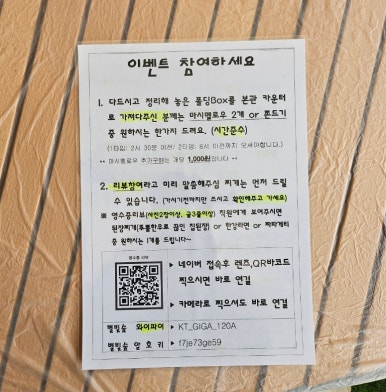 이벤트 참여하세요
1. 다드시고 정리해 놓은 폴딩Box를 본관 카운터
로 가져다주신 분께는 마시멜로우 2개 or 쫀드기
중 원하시는 한가지 드려요. (시간준수)
(1타임: 2시 30분 이전/ 2타임: 8시 이전까지 오셔야합니다.)
** 마시멜로우 추가구매는 개당 1,000원입니다 **
2. 리뷰참여라고 미리 말씀해주심 찌개는 먼저 드릴
수 있습니다. (가시기전까지만 쓰시고 확인해주고 가세요)
※ 영수증리뷰(사진2장이상, 글3줄이상) 직원에게 보여주시면
된장찌개(투뿔한우로 끓인 집된장) or 한강라면 or 짜파게티
중 원하시는 1개를 드립니다~
영수증 리뷰
▶ 네이버 접속후 렌즈,QR바코드
찍으시면 바로 연결
▶ 카메라로 찍으셔도 바로 연결
별빛숲 와이파이 ▶ KT_GIGA_120A
별빛숲 암호키 ▶ f7je73ge59